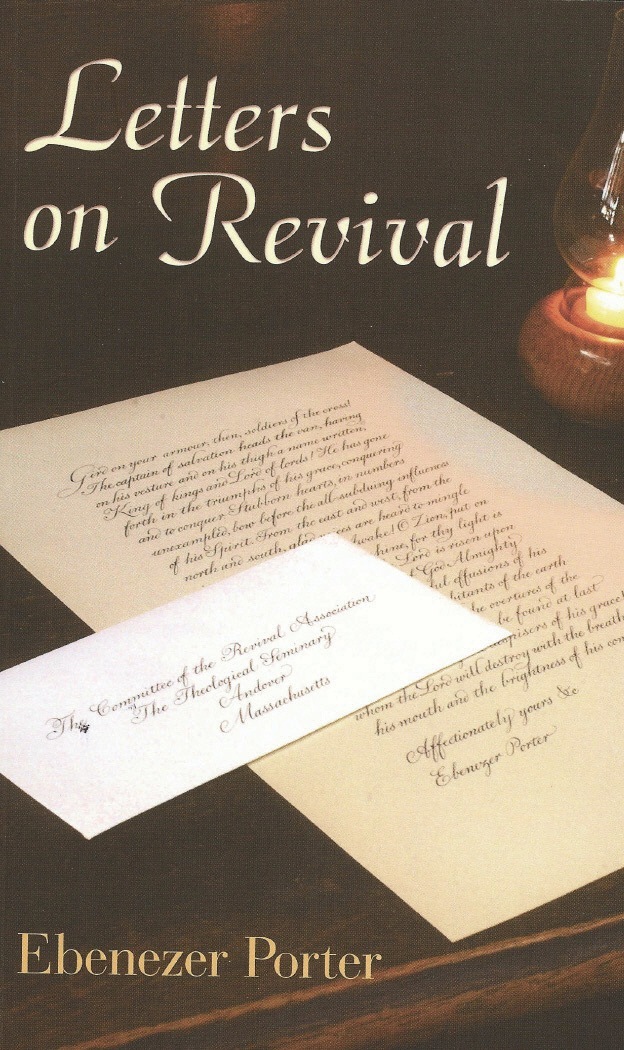 Letters
on Revival
Gird on your armour, then, soldiers of the cross!
The captain of salvation heads the van, having
on his vesture and on his thigh a name written,
King of kings and Lord of lords! He has gone
forth in the triumphs of his grace, conquering
and to conquer. Stubborn hearts, in numbers
unexampled, bow before the all-subduing influences
of his Spirit. From the east and west, from the
north and south, glad voices are heard to mingle
Awake! O Zion, put on
hine, for thy light is
Lord is risen upon
God Almighty
ful effusions of his
bitants of the earth
he overtures of the
be found at last
despisers of his grace
whom the Lord will destroy with the breath
his mouth and the brightness of his com
Affectionately yours &c
Ebenezer Porter
The Committee of the Revival Association
The Theological Seminary
Andover
Massachusetts
Ebenezer Porter